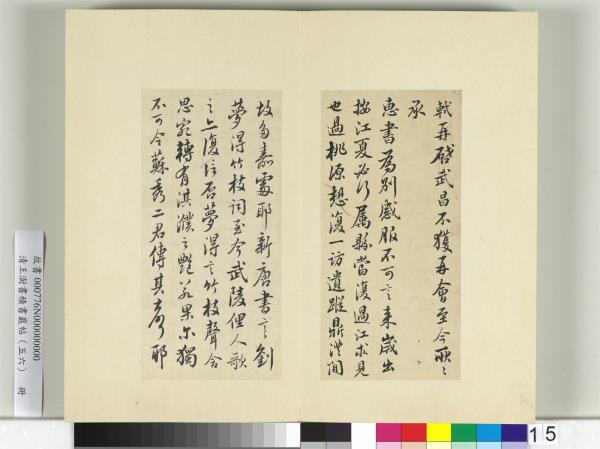 軾再啟武昌不獲再會至今耿〻
承
惠書為別感服不可言来歲出
按江夏必行屬縣當復過江求見
也過桃源想復一訪遺蹤鼎澧間
故多嘉處耶新唐書言劉
夢得竹枝詞至今武陵俚人歌
之復信否夢得言竹枝聲含
思宛轉有淇濮之艷若果尔獨
不可令蘇秀二君傳其奇耶
故書 000776N000000000
清王澍書積書巖帖(五六) 冊
15